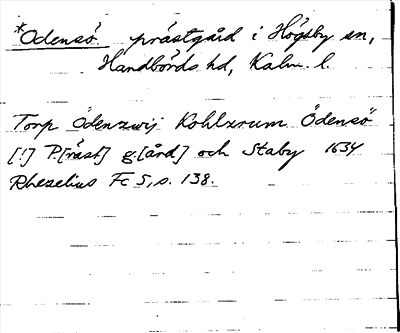 *Ödensö prästgård i Högsby sn,
Handbörds hd, Kalm. l.
Torp Ödenzwij Kohlzrum Ödensö
[!] P.[räst] g.[ård] och Staby 1634
Rhezelius Fc 5, s. 138.